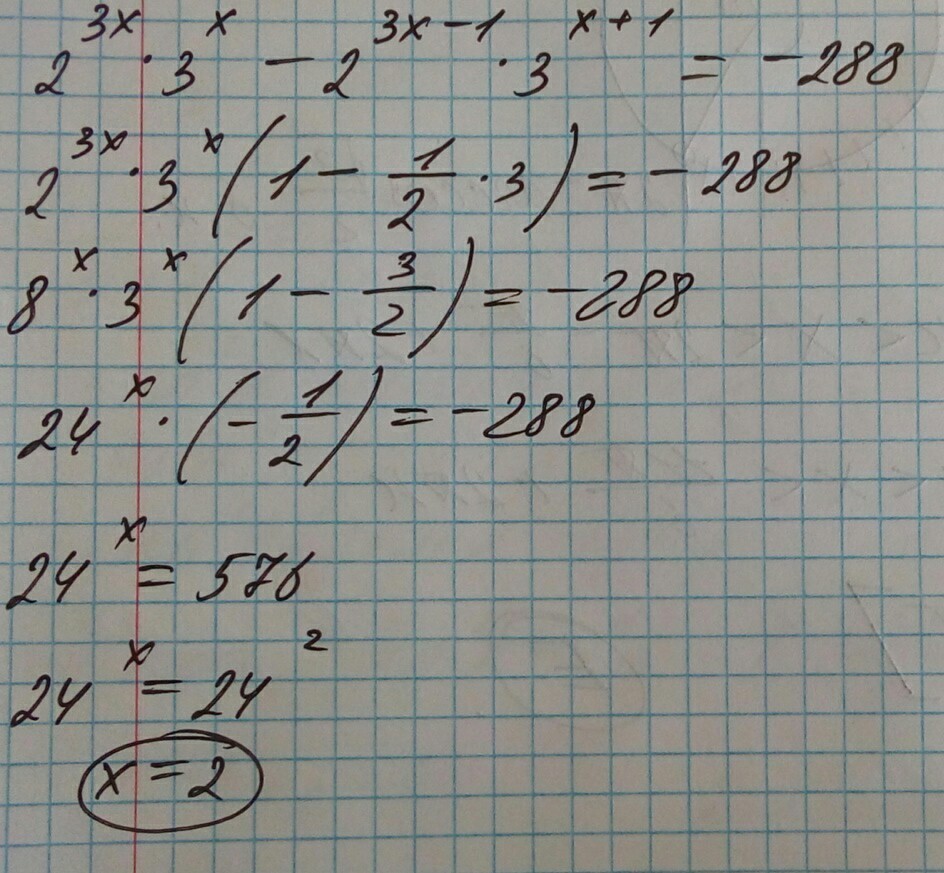 2^{3x} · 3^{x} − 2^{3x−1} · 3^{x+1} = −288
2^{3x} · 3^{x} (1 − \frac{1}{2} · 3) = −288
8^{x} · 3^{x} (1 − \frac{3}{2}) = −288
24^{x} · (−\frac{1}{2}) = −288
24^{x} = 576
24^{x} = 24^{2}
x = 2